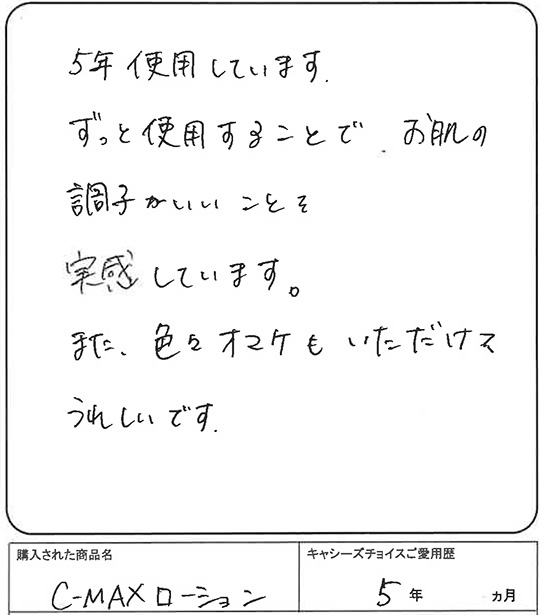 5年使用しています.
ずっと使用することで、お肌の
調子がいいことを
実感しています。
また、色々オマケもいただけて
うれしいです.
購入された商品名
C-MAXローション
キャシーズチョイスご愛用歴
5年 ヵ月